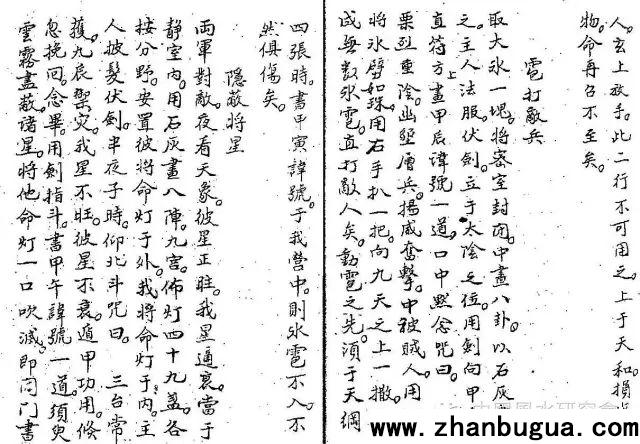 人。玄上放手。此二行不可用之。上于天和損
物命再召不至矣。
電打敵兵
取大氷一塊。將密室封閉。中畫八卦。以石灰
之。主人法服伏劍。立于太陰之位。用劍向甲
直符方上畫甲辰諱號一道。口中黙念咒曰。
栗烈重陰。幽壑層兵。揚威奮擊。中被賊人。用
將氷劈如珠。用右手扒一把。向九天之上一撒。
成無數氷雹。直打敵人矣。動雹之先。須于天綱
四張時。書甲寅諱號。于我營中。則氷雹不入。不
然俱傷矣。
隱蔽將星
兩軍對敵。夜看天象。彼星正旺。我星適衰。當于
靜室內。用石灰畫八陣。九宮佈灯四十九盞。各
按分野。安置彼將命灯于外。我將命灯于內。主
人披髮伏劍。半夜子時。仰北斗咒曰。三台常
護。九宸禦灾。我星不旺。彼星不衰。遁甲功用。倏
忽挽回。念畢。用劍指斗。書甲午諱號一道。須臾
雲霧盡敝諸星。將他命灯一口吹滅。即閉門書
www.zhanbugua.com